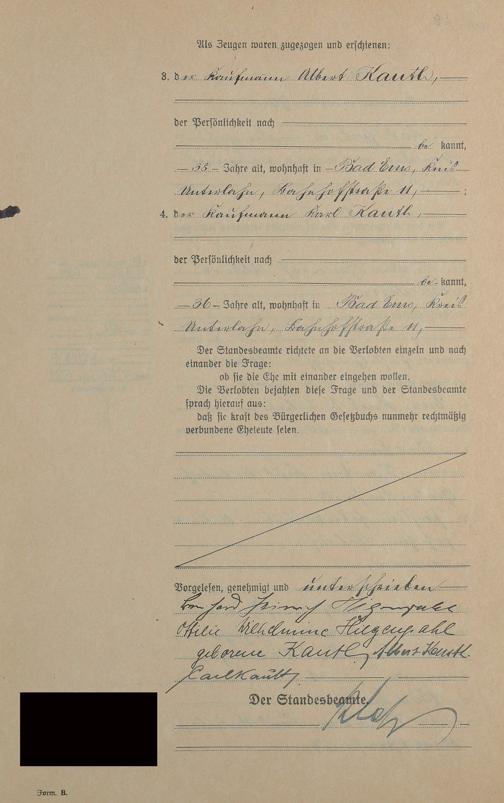 Als Zeugen waren zugezogen und erschienen:
3. der Kaufmann Albert Kautl,
der Persönlichkeit nach
be kannt,
35 Jahre alt, wohnhaft in Bad Ems, Kreis
Unterlahn, Bahnhofstraße 11, ;
4. der Kaufmann Karl Kautl,
der Persönlichkeit nach
be kannt,
36 Jahre alt, wohnhaft in Bad Ems, Kreis
Unterlahn, Bahnhofstraße 11,
Der Standesbeamte richtete an die Verlobten einzeln und nach
einander die Frage:
ob sie die Ehe mit einander eingehen wollen.
Die Verlobten bejahten diese Frage und der Standesbeamte
sprach hierauf aus:
daß sie kraft des Bürgerlichen Gesetzbuchs nunmehr rechtmäßig
verbundene Eheleute seien.
Vorgelesen, genehmigt und unterschrieben
Heinrich Hilgenpahl
Ottilie Wilhelmine Hilgenpahl
geborene Kautl, Albert Kautl
Carl Kautl
Der Standesbeamte.
Form. B.